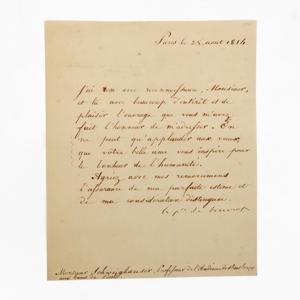 Paris le 28. aout 1814.
J'ai reçu avec reconnaissance, Monsieur,
et lû avec beaucoup d'intérêt et de
plaisir l'ouvrage que vous m'avez
fait l'honneur de m'adresser. On
ne peut qu'applaudir aux vœux
que vôtre belle ame vous inspire pour
le bonheur de l'humanité.
Agréez avec mes remerciemens
l'assurance de ma parfaite estime et
de ma considération distinguée.
le de
Monsieur Schweighauser, Professeur de l'Académie de Strasbourg